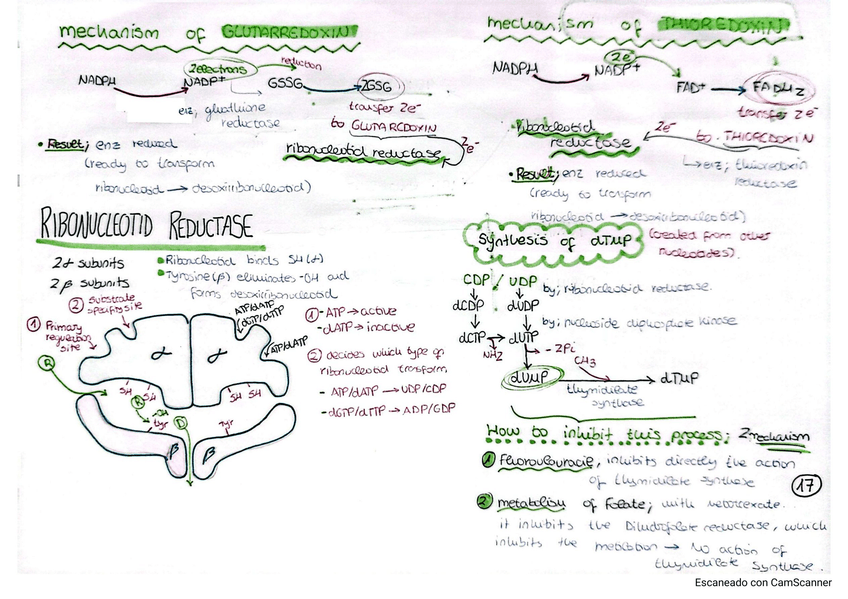 mechanism of GLUTARREDOXIN
NADPH
2electrons
NADP+
reduction
GSSG
2GSG
enz, glutathione
reductase
transfer 2e-
to GLUTAREDOXIN
ribonucleotid reductase
2e-
• Result; enz reduced
(ready to transform
ribonucleotid → desoxiribonucleotid)
mechanism of THIOREDOXIN
NADPH
2e-
NADP+
FAD+
FADH2
transfer 2e-
to THIOREDOXIN
2e-
• Ribonucleotid
reductase
enz; thioredoxin
reductase
• Result; enz reduced
(ready to transform
ribonucleotid → desoxiribonucleotid)
RIBONUCLEOTID REDUCTASE
2α subunits
2β subunits
• Ribonucleotid binds SH (α)
• Tyrosine (β) eliminates -OH and
forms desoxiribonucleotid
② substrate
specifity site
① Primary
regulation
site
ATP/dATP
dGTP/dTTP
ATP/dATP
α
α
R
SH
SH
SH
SH
R
-OH
Tyr
D
Tyr
β
β
① - ATP → active
- dATP → inactive
② decides which type of
ribonucleotid transform
- ATP/dATP → UDP/CDP
- dGTP/dTTP → ADP/GDP
Synthesis of dTMP
(created from other
nucleotides).
CDP / UDP
by; ribonucleotid reductase.
dCDP dUDP
by; nucleoside diphosphate kinase
dCTP → dUTP
NH2
- 2Pi
CH3
dUMP
dTMP
thymidilate
synthase
How to inhibit this process; 2 mechanism
① Fluorouracile, inhibits directly the action
of thymidilate synthase
17
② metabolism of Folate; with
it inhibits the Dihidrofolate reductase, which
inhibits the → No action of
thymidilate synthase.
Escaneado con CamScanner